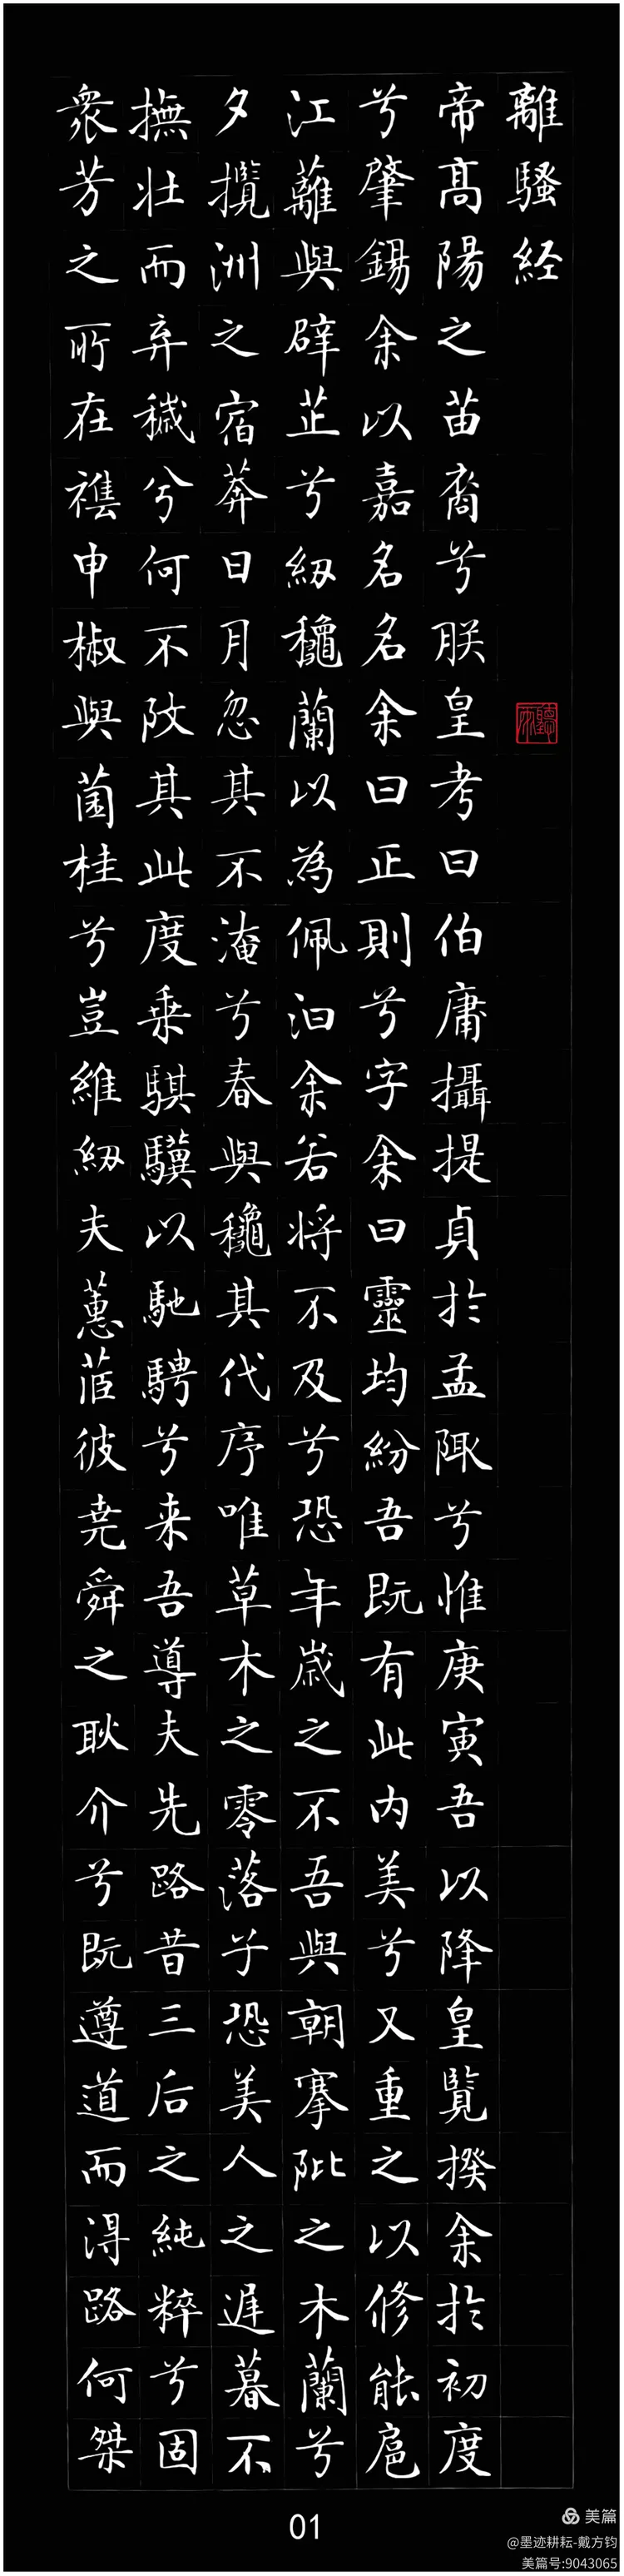 離騷経
帝髙陽之苗裔兮朕皇考曰伯庸攝提貞於孟陬兮惟庚寅吾以降皇覽揆余於初度
兮肇錫余以嘉名名余曰正則兮字余曰靈均紛吾既有此内美兮又重之以修能扈
江蘺與辟芷兮紉穐蘭以為佩汩余若将不及兮恐年歳之不吾與朝搴阰之木蘭兮
夕攬洲之宿莽日月忽其不淹兮春與穐其代序唯草木之零落子恐美人之遟暮不
撫壮而弃穢兮何不改其此度乗騏驥以馳騁兮来吾導夫先路昔三后之純粹兮固
衆芳之所在襍申椒與菌桂兮豈維紉夫蕙茝彼尭舜之耿介兮既遵道而淂路何桀
01
美篇
@墨迹耕耘-戴方钧
美篇号:9043065